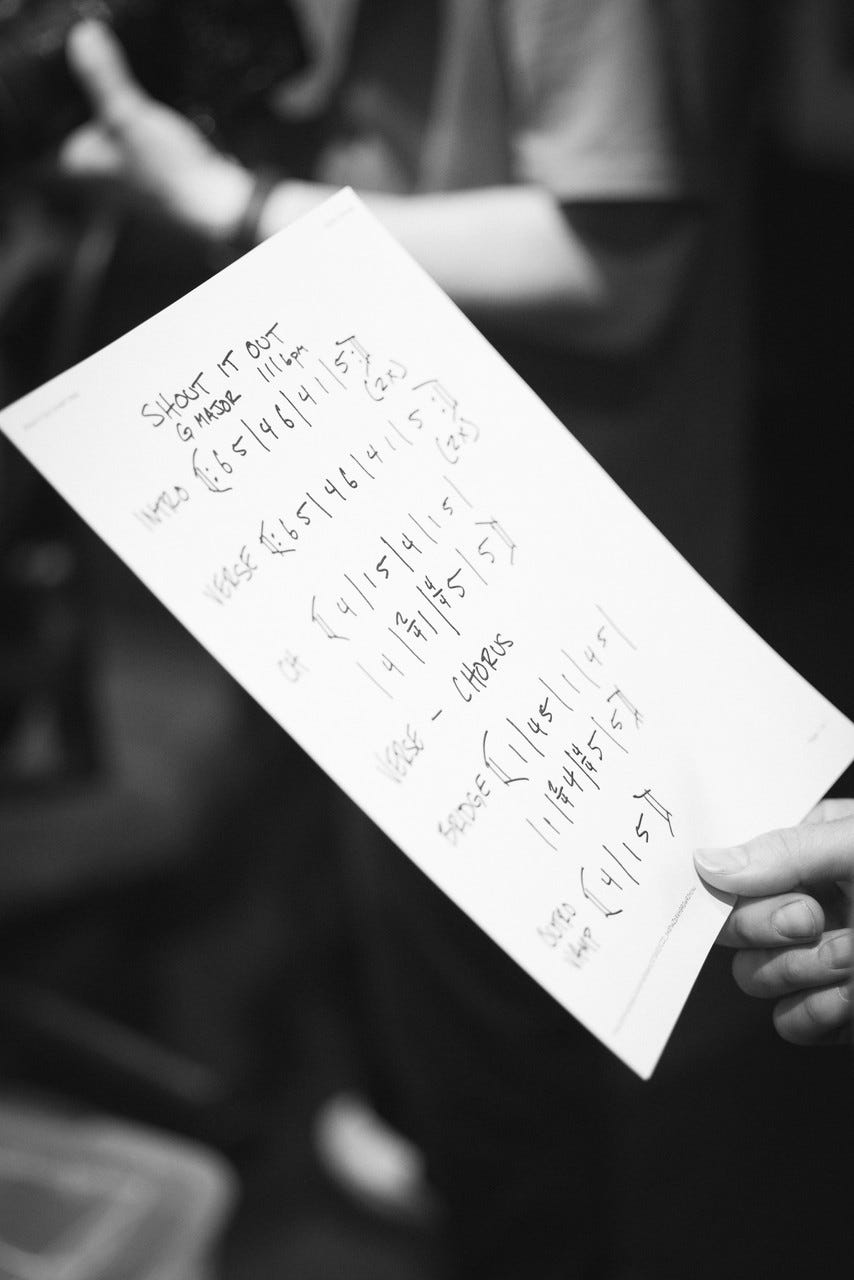 SHOUT IT OUT
G MAJOR 116bpm
INTRO [: 6 5 | 4 6 | 4 1 | 5 :] (2x)
VERSE [: 6 5 | 4 6 | 4 1 | 5 :] (2x)
CH [ 4 | 1 5 | 4 | 1 5 |
| 4 | 2/4 1 | 4/4 5 | 5 ]
VERSE - CHORUS
BRIDGE [ 1 | 4 5 | 1 | 4 5 |
| 1 | 2/4 4 | 4/4 5 | 5 ]
OUTRO VAMP [ 4 | 1 5 ]